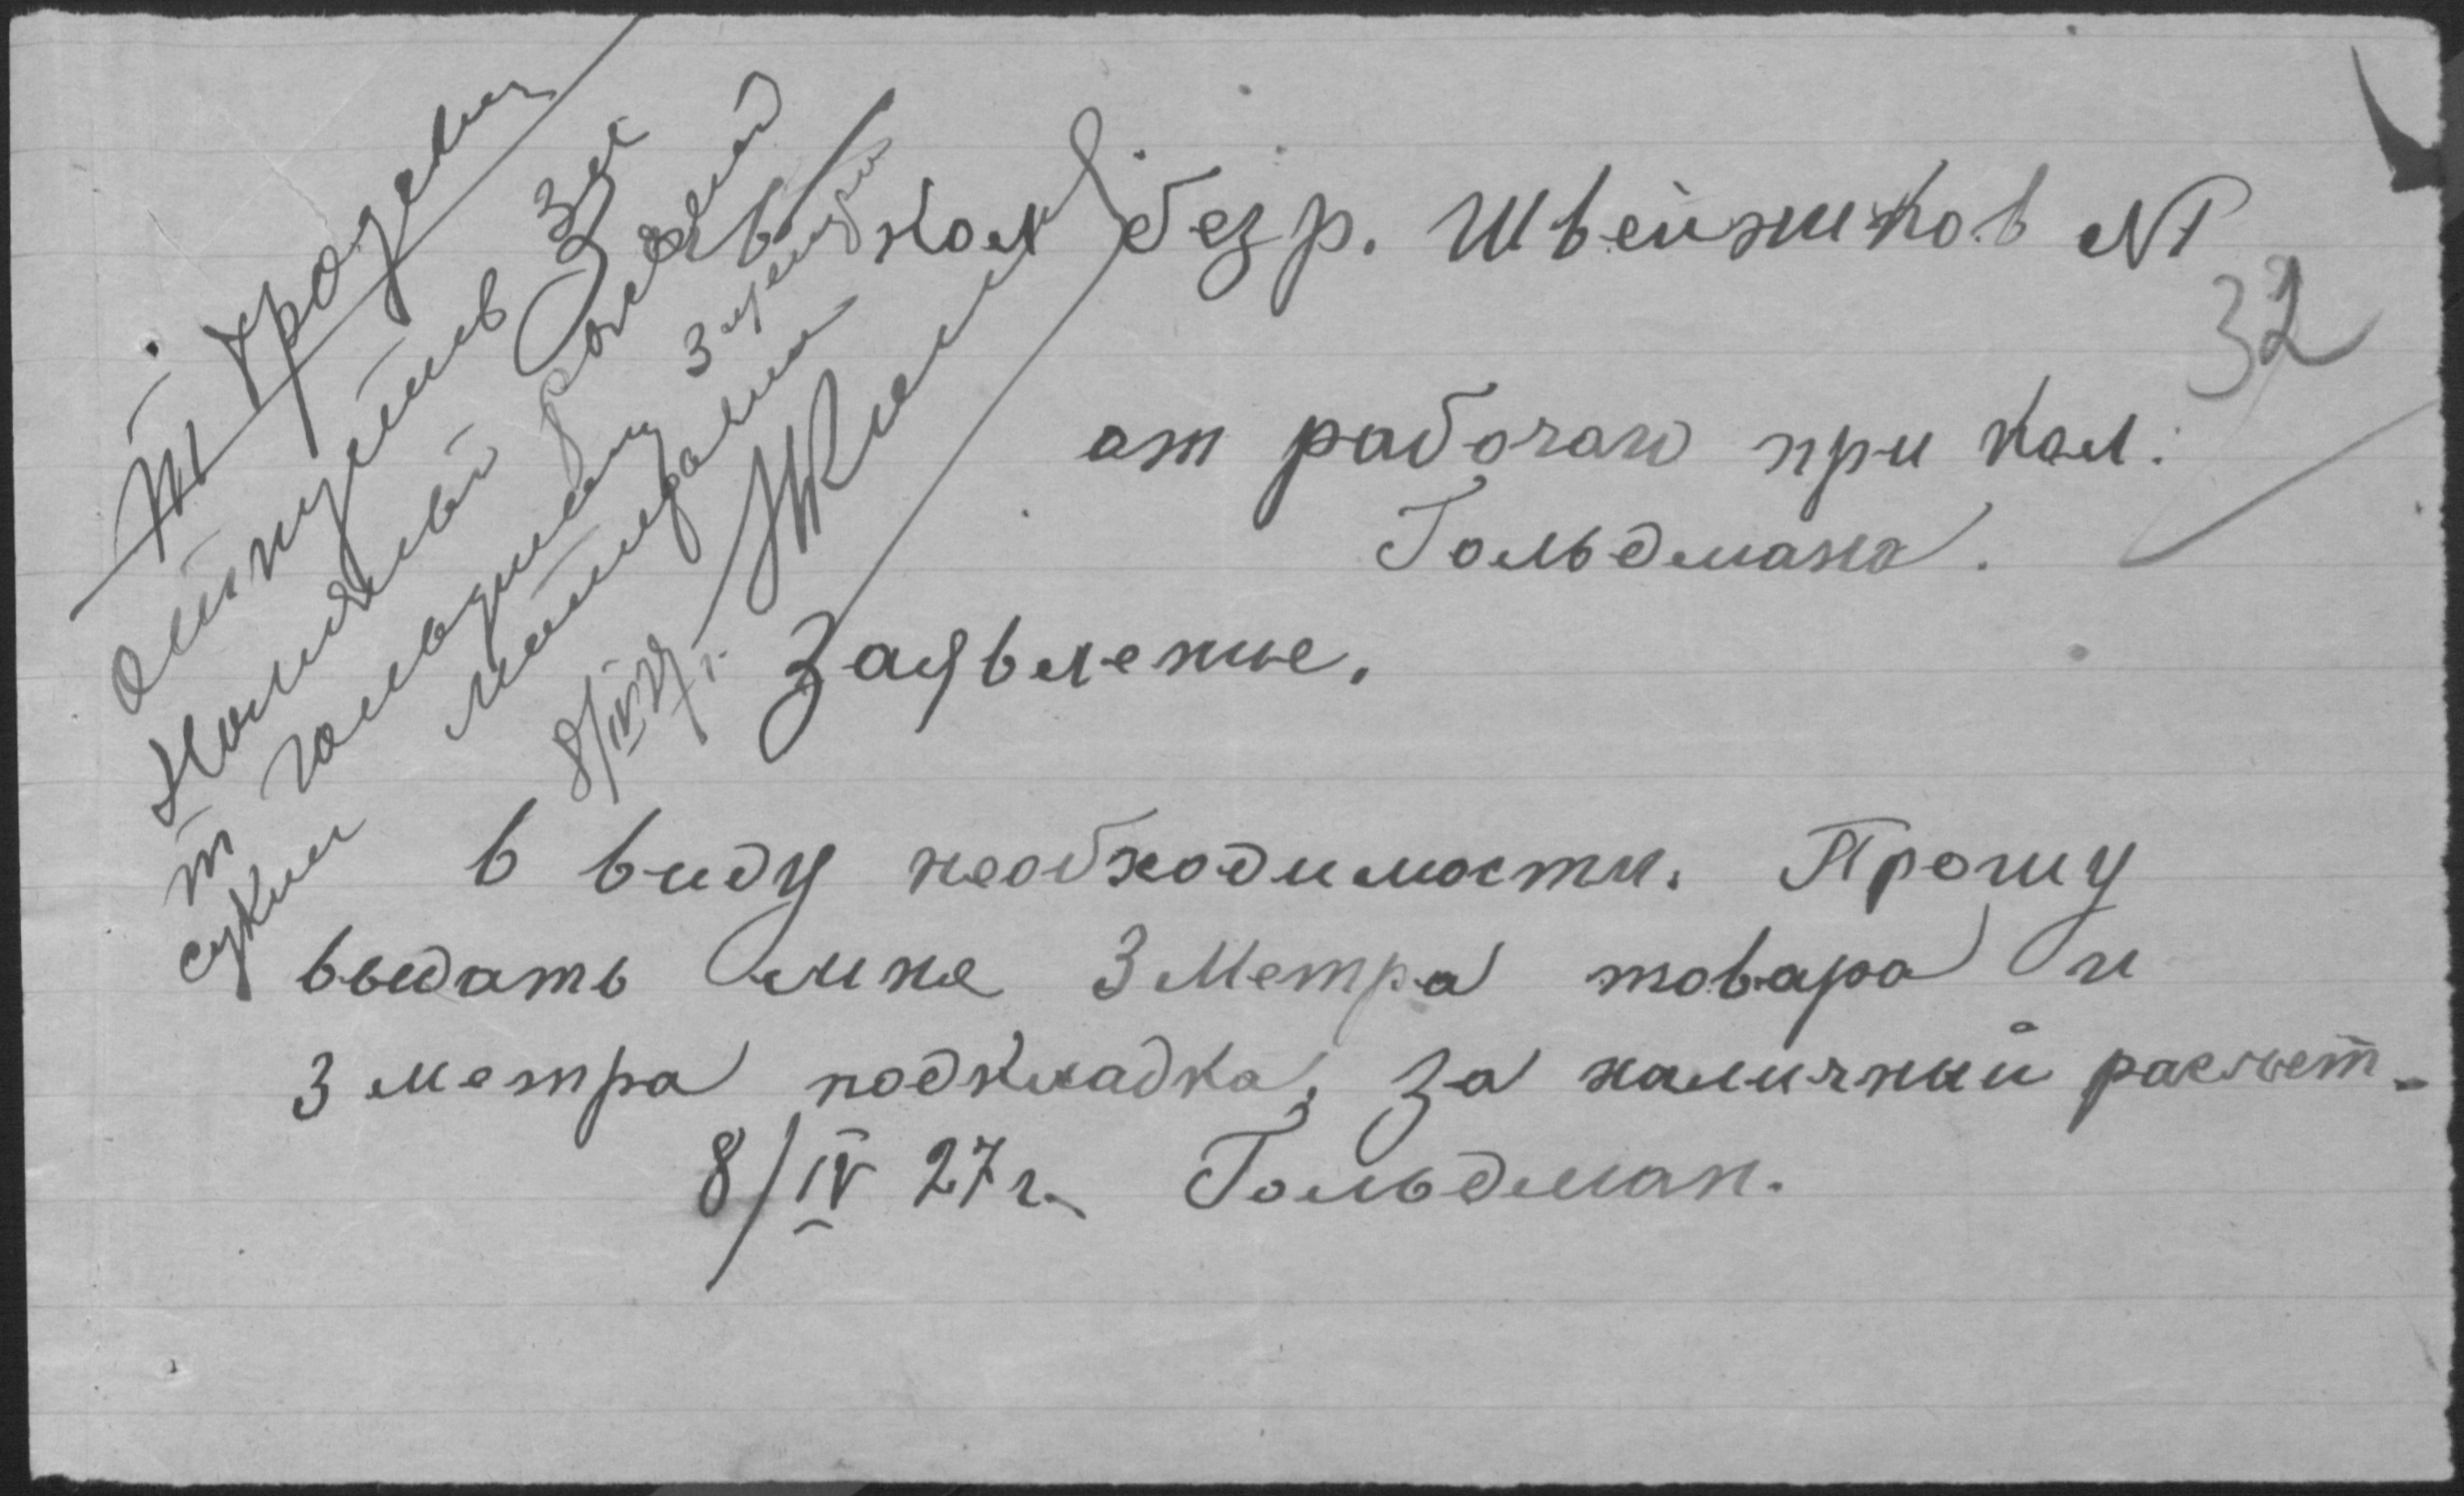 В Кол безр. Швейников №1
32
от рабочаго при Кол:
Гольдмана.
Заявление.
В виду необходимости. Прошу
выдать мне 3 Метра товара и
3 метра подкладка, за наличний расчет.
8/IV 27 г. Гольдман.
Отпустить за
Наличный
т Гольдману 3 метра
сукна
8/IV 27 г.